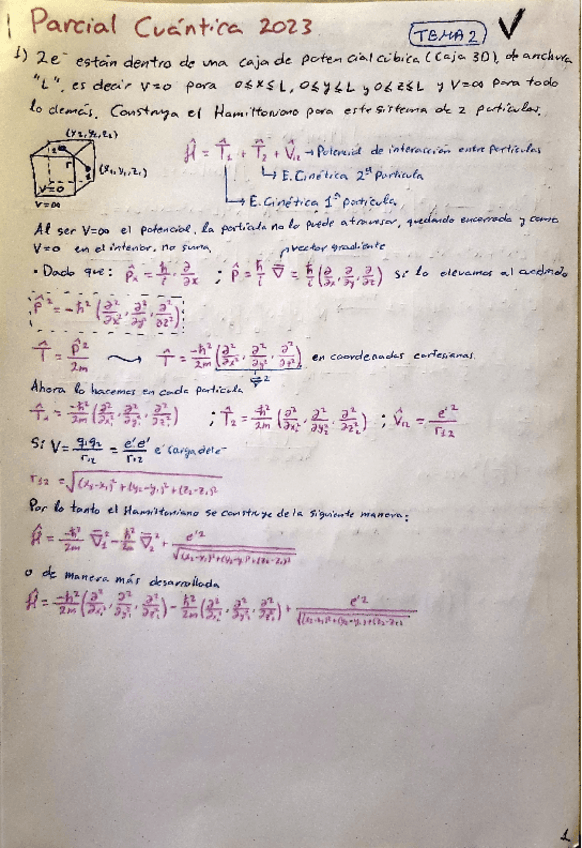 Parcial Cuántica 2023
TEMA 2
1) 2e⁻ están dentro de una caja de potencial cúbica (Caja 3D), de anchura
"L", es decir V=0 para 0≤x≤L, 0≤y≤L y 0≤z≤L y V=∞ para todo
lo demás. Construya el Hamiltoniano para este sistema de 2 partículas.
(x₂,y₂,z₂)
(x₁,y₁,z₁)
r
V=0
V=∞
Ĥ = T̂₁ + T̂₂ + V̂₁₂ → Potencial de interacción entre partículas
↳ E. Cinética 2ª Partícula
↳ E. Cinética 1ª partícula
Al ser V=∞ el potencial, la partícula no lo puede atravesar, quedando encerrada y como
V=0 en el interior, no suma.
vector gradiente
• Dado que: p̂ₓ = ħ/i · ∂/∂x ; p̂ = ħ/i ∇ = ħ/i (∂/∂x, ∂/∂y, ∂/∂z) si lo elevamos al cuadrado
p̂² = -ħ² (∂²/∂x², ∂²/∂y², ∂²/∂z²)
T̂ = p̂²/2m ⟶ T̂ = -ħ²/2m (∂²/∂x², ∂²/∂y², ∂²/∂z²) en coordenadas cartesianas.
∇²
Ahora lo hacemos en cada partícula
T̂₁ = -ħ²/2m (∂²/∂x₁², ∂²/∂y₁², ∂²/∂z₁²) ; T̂₂ = -ħ²/2m (∂²/∂x₂², ∂²/∂y₂², ∂²/∂z₂²) ; V̂₁₂ = e'²/r₁₂
Si V = q₁q₂/r₁₂ = e'e'/r₁₂ e' carga del e⁻
r₁₂ = √((x₂-x₁)²+(y₂-y₁)²+(z₂-z₁)²)
Por lo tanto el Hamiltoniano se construye de la siguiente manera:
Ĥ = -ħ²/2m ∇₁² - ħ²/2m ∇₂² + e'²/√((x₂-x₁)²+(y₂-y₁)²+(z₂-z₁)²)
o de manera más desarrollada
Ĥ = -ħ²/2m (∂²/∂x₁², ∂²/∂y₁², ∂²/∂z₁²) - ħ²/2m (∂²/∂x₂², ∂²/∂y₂², ∂²/∂z₂²) + e'²/√((x₂-x₁)²+(y₂-y₁)²+(z₂-z₁)²)
1